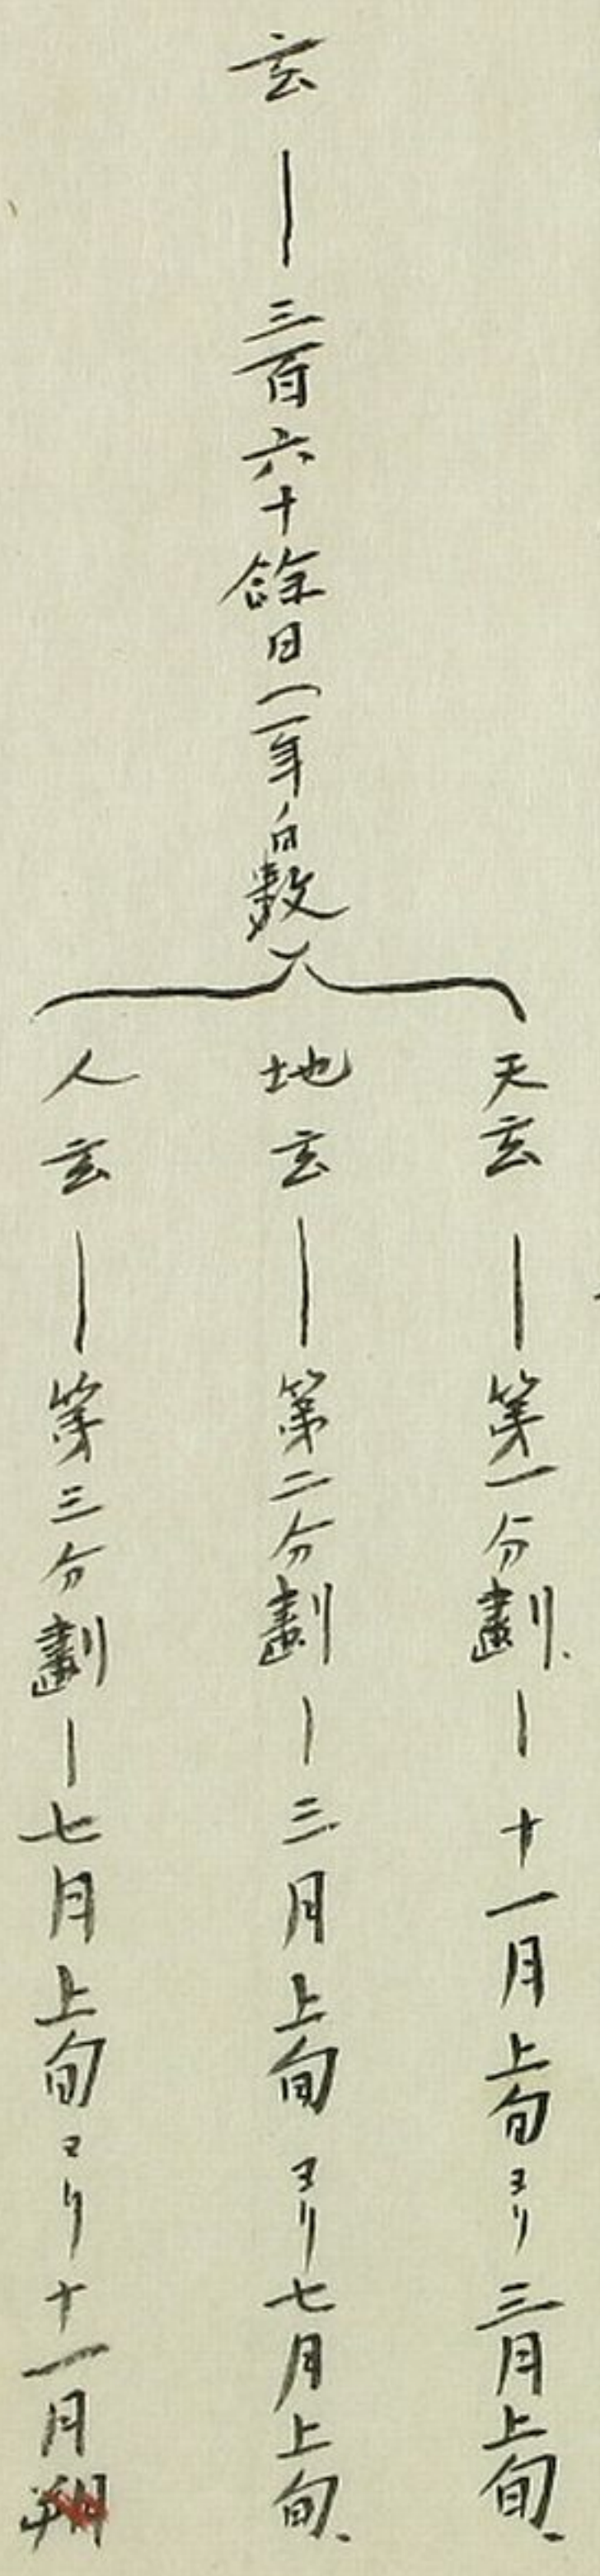 玄―三百六十餘日(一年ノ日數
天玄―第一分劃―十一月上旬ヨリ三月上旬
地玄―第二分劃―三月上旬ヨリ七月上旬
人玄―第三分劃―七月上旬ヨリ十一月朔